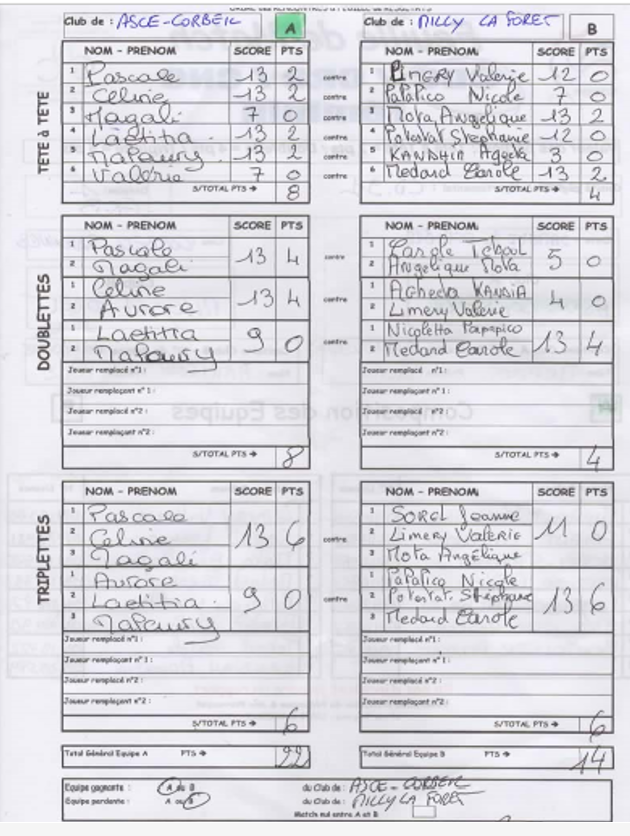 ORDRE DES RENCONTRES & FEUILLE DE RESULTATS
Club de : ASCE-CORBEIL A
Club de : MILLY LA FORET B
TETE à TETE
NOM - PRENOM SCORE PTS NOM - PRENOM SCORE PTS
1 Pascale 13 2 contre 1 LIMERY Valerie 12 0
2 Celine 13 2 contre 2 Papapico Nicole 7 0
3 Magali 7 0 contre 3 Mota Angelique 13 2
4 Laetitia 13 2 contre 4 Potestat Stephanie 12 0
5 Mafaury 13 2 contre 5 KANDHIA Agheta 3 0
6 Valérie 7 0 contre 6 Medard Carole 13 2
S/TOTAL PTS → 8 S/TOTAL PTS → 4
DOUBLETTES
NOM - PRENOM SCORE PTS NOM - PRENOM SCORE PTS
1 Pascale 13 4 contre 1 Carole 5 0
2 Magali 2 Angelique Mota
1 Celine 13 4 contre 1 KANDIA 4 0
2 Aurore 2 Limery Valerie
1 Laetitia 9 0 contre 1 Nicoletta Papapico 13 4
2 Mafaury 2 Medard Carole
Joueur remplacé n°1 : Joueur remplacé n°1 :
Joueur remplaçant n°1 : Joueur remplaçant n°1 :
Joueur remplacé n°2 : Joueur remplacé n°2 :
Joueur remplaçant n°2 : Joueur remplaçant n°2 :
S/TOTAL PTS → 8 S/TOTAL PTS → 4
TRIPLETTES
NOM - PRENOM SCORE PTS NOM - PRENOM SCORE PTS
1 Pascale 13 6 contre 1 SOREL Jeanne 11 0
2 Celine 2 Limery Valerie
3 Magali 3 Mota Angélique
1 Aurore 9 0 contre 1 Papapico Nicole 13 6
2 Laetitia 2 Potestat Stéphane
3 Mafaury 3 Medard Carole
Joueur remplacé n°1 : Joueur remplacé n°1 :
Joueur remplaçant n°1 : Joueur remplaçant n°1 :
Joueur remplacé n°2 : Joueur remplacé n°2 :
Joueur remplaçant n°2 : Joueur remplaçant n°2 :
S/TOTAL PTS → 6 S/TOTAL PTS → 6
Total Général Equipe A PTS → 22 Total Général Equipe B PTS → 14
Equipe gagnante : A ou B du Club de : ASCE-CORBEIL
Equipe perdante : A ou B du Club de : MILLY LA FORET
Match nul entre A et B